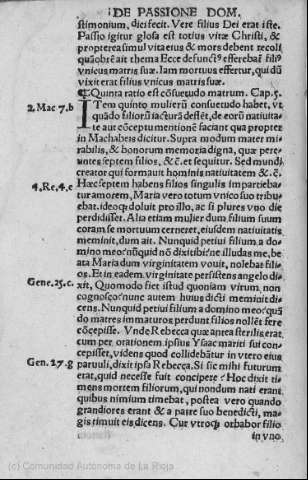 DE PASSIONE DOM.
stimonium, dicĩ fecit. Vere filius Dei erat iste.
Passio igitur glosa est totius vitæ Christi, &
propterea simul vita eius & mors debent recoli
quã obrẽ ait thema Ecce defunctꝰ efferebat filiꝰ
vnicus matris suæ. Iam mortuus effertur, qui dũ
vixit erat filius vnicus matris suæ.
¶ Quinta ratio est cõsuetudo matrum. Cap. 5.
2. Mac 7. b
ITem quinto mulierũ consuetudo habet, vt
quãdo filiorũ iactura dẽflet, de eorũ natiuita-
te aut cõceptu mentionẽ faciant qua propter
in Machabeis dicitur. Supra modum mater mi-
rabilis, & honorum memoria digna, quæ pere-
untes septem filios, & č. et sequitur. Sed mundi
creator qui formauit hominis natiuitatem & č.
4. Re. 4. e
Hæc septem habens filios singulis impartieba-
tur amorem, Maria vero totum vnico suo tribu-
ebat. ideoqꝫ doluit pro illo, ac si plures vno die
perdidisset. Alia etiam mulier dum filium suum
coram se mortuum cerneret, eiusdem natiuitatis
meminit, dum ait. Nunquid petiui filium a do-
mino meo: nũquid nõ dixi tibi: ne illudas me, be
ata Maria dum virginitatem vouit, nolebat fili-
os. Et in eadem virginitate persistens angelo di-
Gene. 25. c.
xit, Quomodo fiet istud quoniam virum non
cognosco: nunc autem huius dicti meminit di-
cens. Nunquid petiui filium a domino meo: quã
do matres immaturos perdunt filios nollẽt fere
cõcepisse. Vnde Rebecca quæ antea sterilis erat,
cum per orationem ipsius Ysaac mariti sui con-
cepisset, videns quod collidebãtur in vtero eius
Gen. 27. g
paruuli, dixit ipsa Rebecca. Si sic mihi futurum
erat, quid necesse fuit concipere? Hoc dixit ti-
mens mortem filiorum, qui nondum nati erant,
quibus nimium timebat, postea vero quando
grandiores erant & a patre suo benedicti, ma-
gis timuit eis dicens. Cur vtroqꝫ orbabor filio
in vno
(c) Comunidad Autónoma de La Rioja